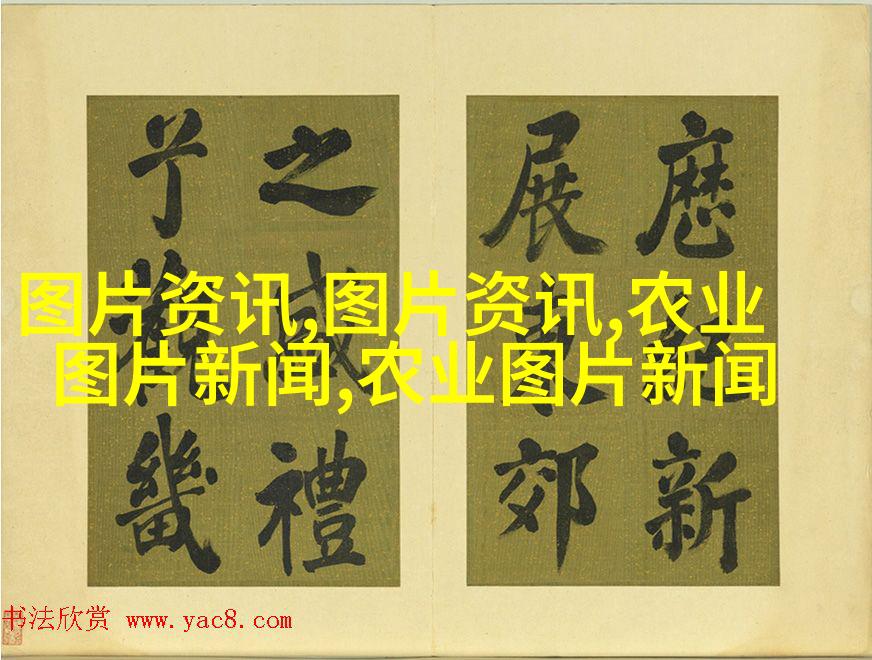 图片资讯,图片资讯,农业
图片新闻,农业图片新闻
厯新
展郊
之盛禮
畿
书法欣赏 www.yac8.com